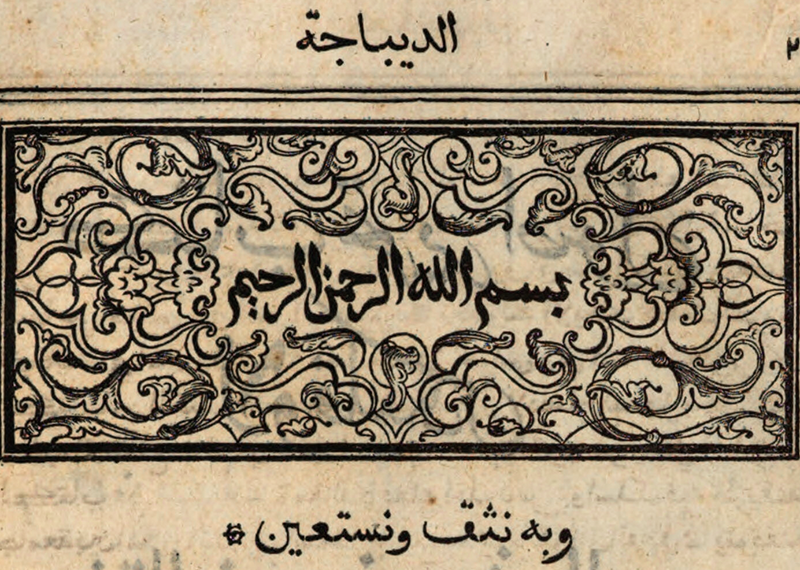 ٢
الديباجة
بسم الله الرحمن الرحيم
وبه نثق ونستعين